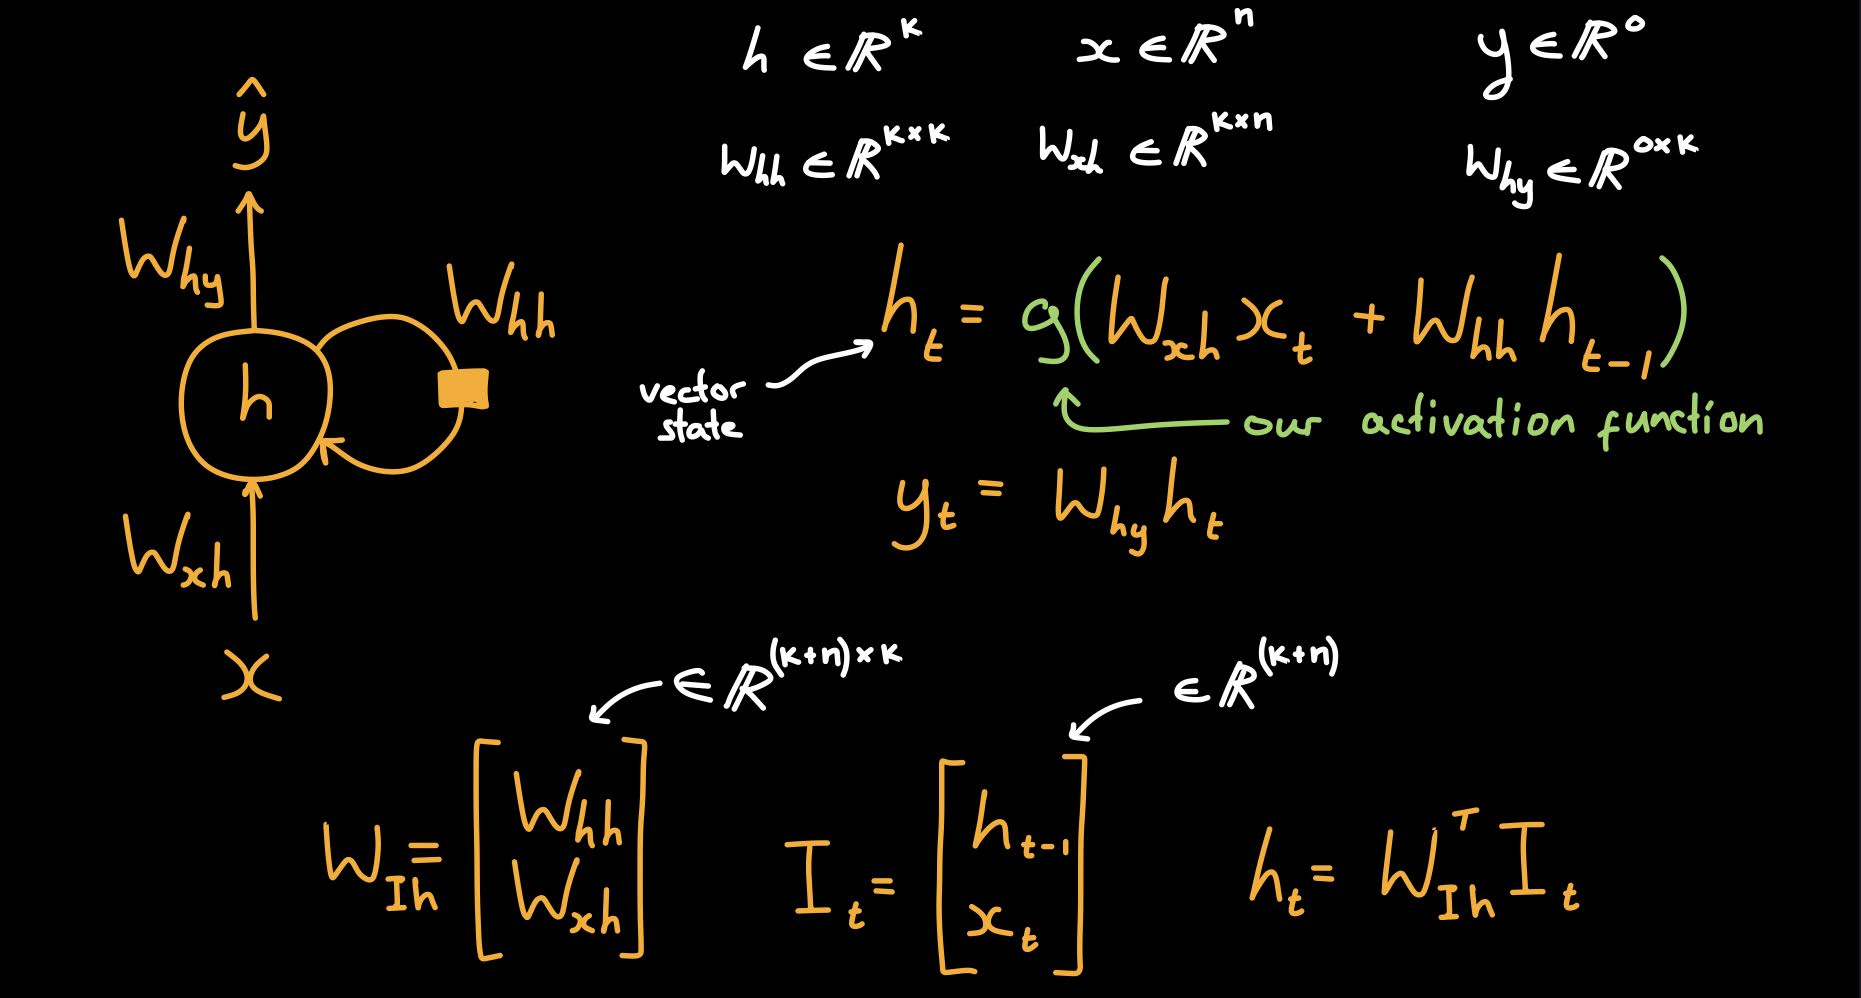 h ∈ ℝ^k
x ∈ ℝ^n
y ∈ ℝ^o
W_hh ∈ ℝ^{k×k}
W_xh ∈ ℝ^{k×n}
W_hy ∈ ℝ^{o×k}
ŷ
W_hy
W_hh
h
W_xh
x
h_t = g(W_xh x_t + W_hh h_{t-1})
vector
state
our activation function
y_t = W_hy h_t
∈ ℝ^{(k+n)×k}
∈ ℝ^{(k+n)}
W_Ih = [W_hh
W_xh]
I_t = [h_{t-1}
x_t]
h_t = W_Ih^T I_t